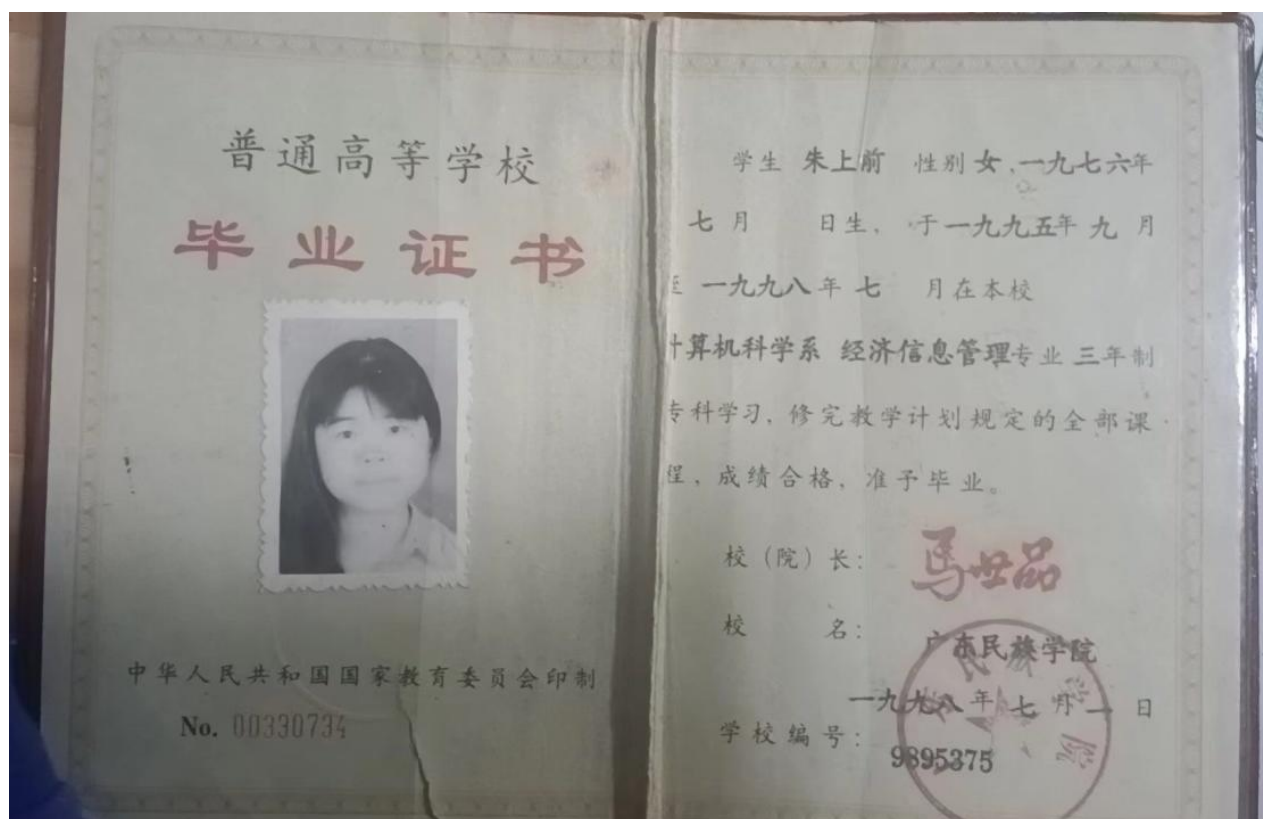 普通高等学校
毕业证书
中华人民共和国国家教育委员会印制
No. 00330734
学生 朱上前 性别 女, 一九七六年
七月 日生, 于一九九五年九月
至一九九八年七 月在本校
计算机科学系 经济信息管理专业 三年制
专科学习, 修完教学计划规定的全部课
程, 成绩合格, 准予毕业。
校（院）长: 马世品
校 名: 广东民族学院
一九九八年七月一日
学校编号: 9895375